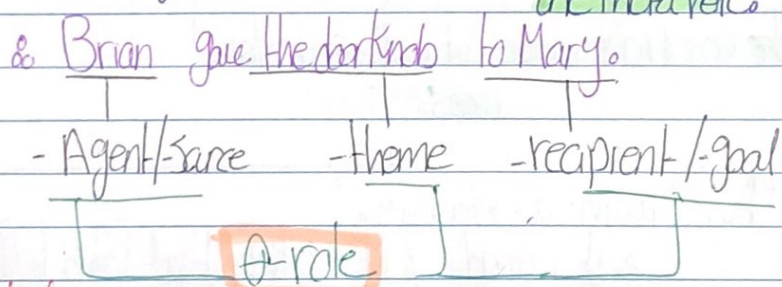 & Brian gave the doorknob to Mary.
- Agent/-Sarce -theme -recipient/-goal
θ-role